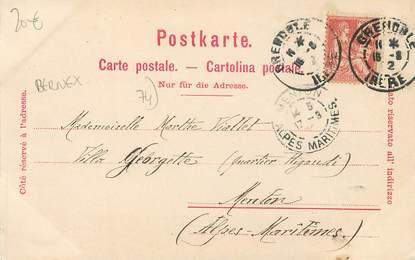 20€
BERNEX
74)
Postkarte.
Carte postale. — Cartolina postale.
Nur für die Adresse.
GRENOBLE
ISÈRE
GRENOBLE
ISÈRE
MENTON
ALPES MARITIMES.
Côté réservé à l'adresse.
Lato riservato all'indirizzo
Mademoiselle Marthe Viallet
Villa Georgette (quartier
Menton
(Alpes-Maritimes)